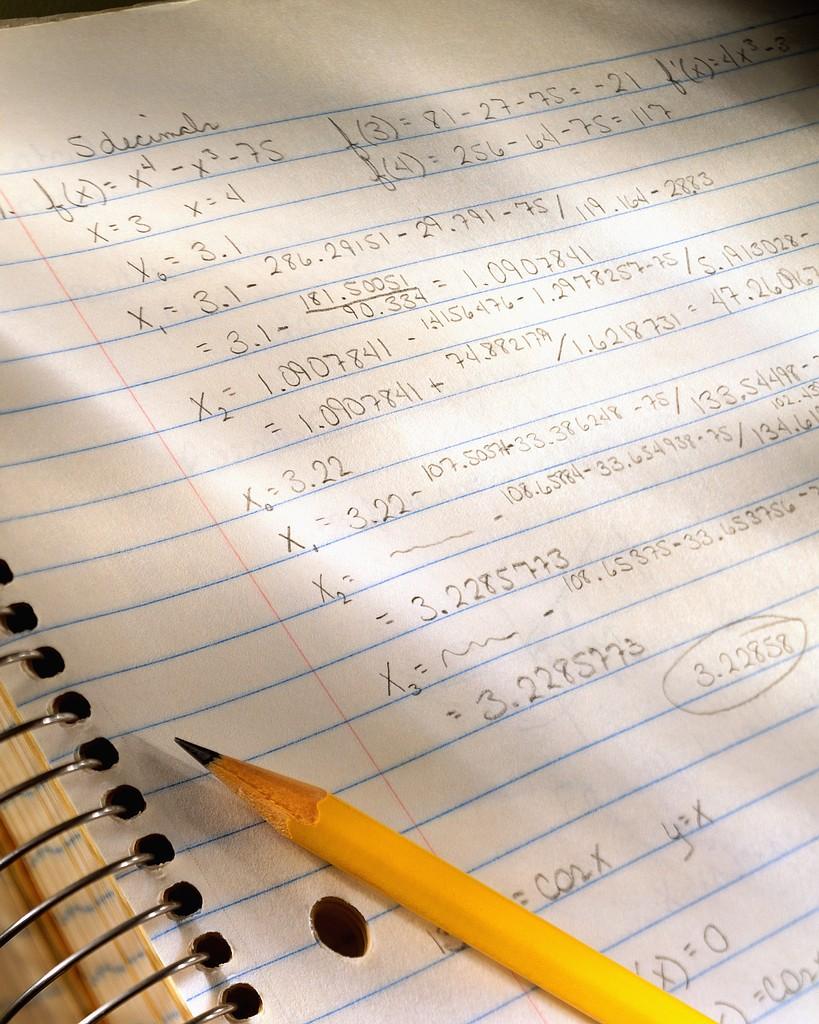 5 decimals
1. f(x) = x⁴ - x³ - 75 f(3) = 81 - 27 - 75 = -21 f'(x) = 4x³ - 3
x = 3 x = 4 f(4) = 256 - 64 - 75 = 117
x₀ = 3.1
x₁ = 3.1 - 286.29151 - 29.791 - 75 / 119.164 - 28.83
= 3.1 - 181.50051 / 90.334 = 1.0907841
x₂ = 1.0907841 - 1.4156476 - 1.2978257 - 75 / 5.1913028 -
= 1.0907841 + 74.882179 / 1.6218731 = 47.260967
x₀ = 3.22
x₁ = 3.22 - 107.5037 - 33.386248 - 75 / 133.54498 -
x₂ = - 108.65884 - 33.654938 - 75 / 134.61
= 3.2285773
x₃ = - 108.65375 - 33.653756 -
= 3.2285773 3.22858
= cosx y = x
(x) = 0
) = cos